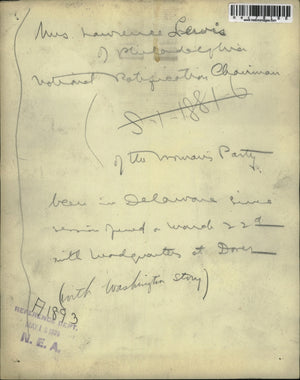 Mrs. Lawrence Lewis
of Philadelphia
National Ratification Chairman
S-1-1881-6
of the Woman's Party
been in Delaware since
session opened March 22d
with headquarters at Dover
(with Washington Story)
A1893
REFERENCE DEPT.
N. E. A.